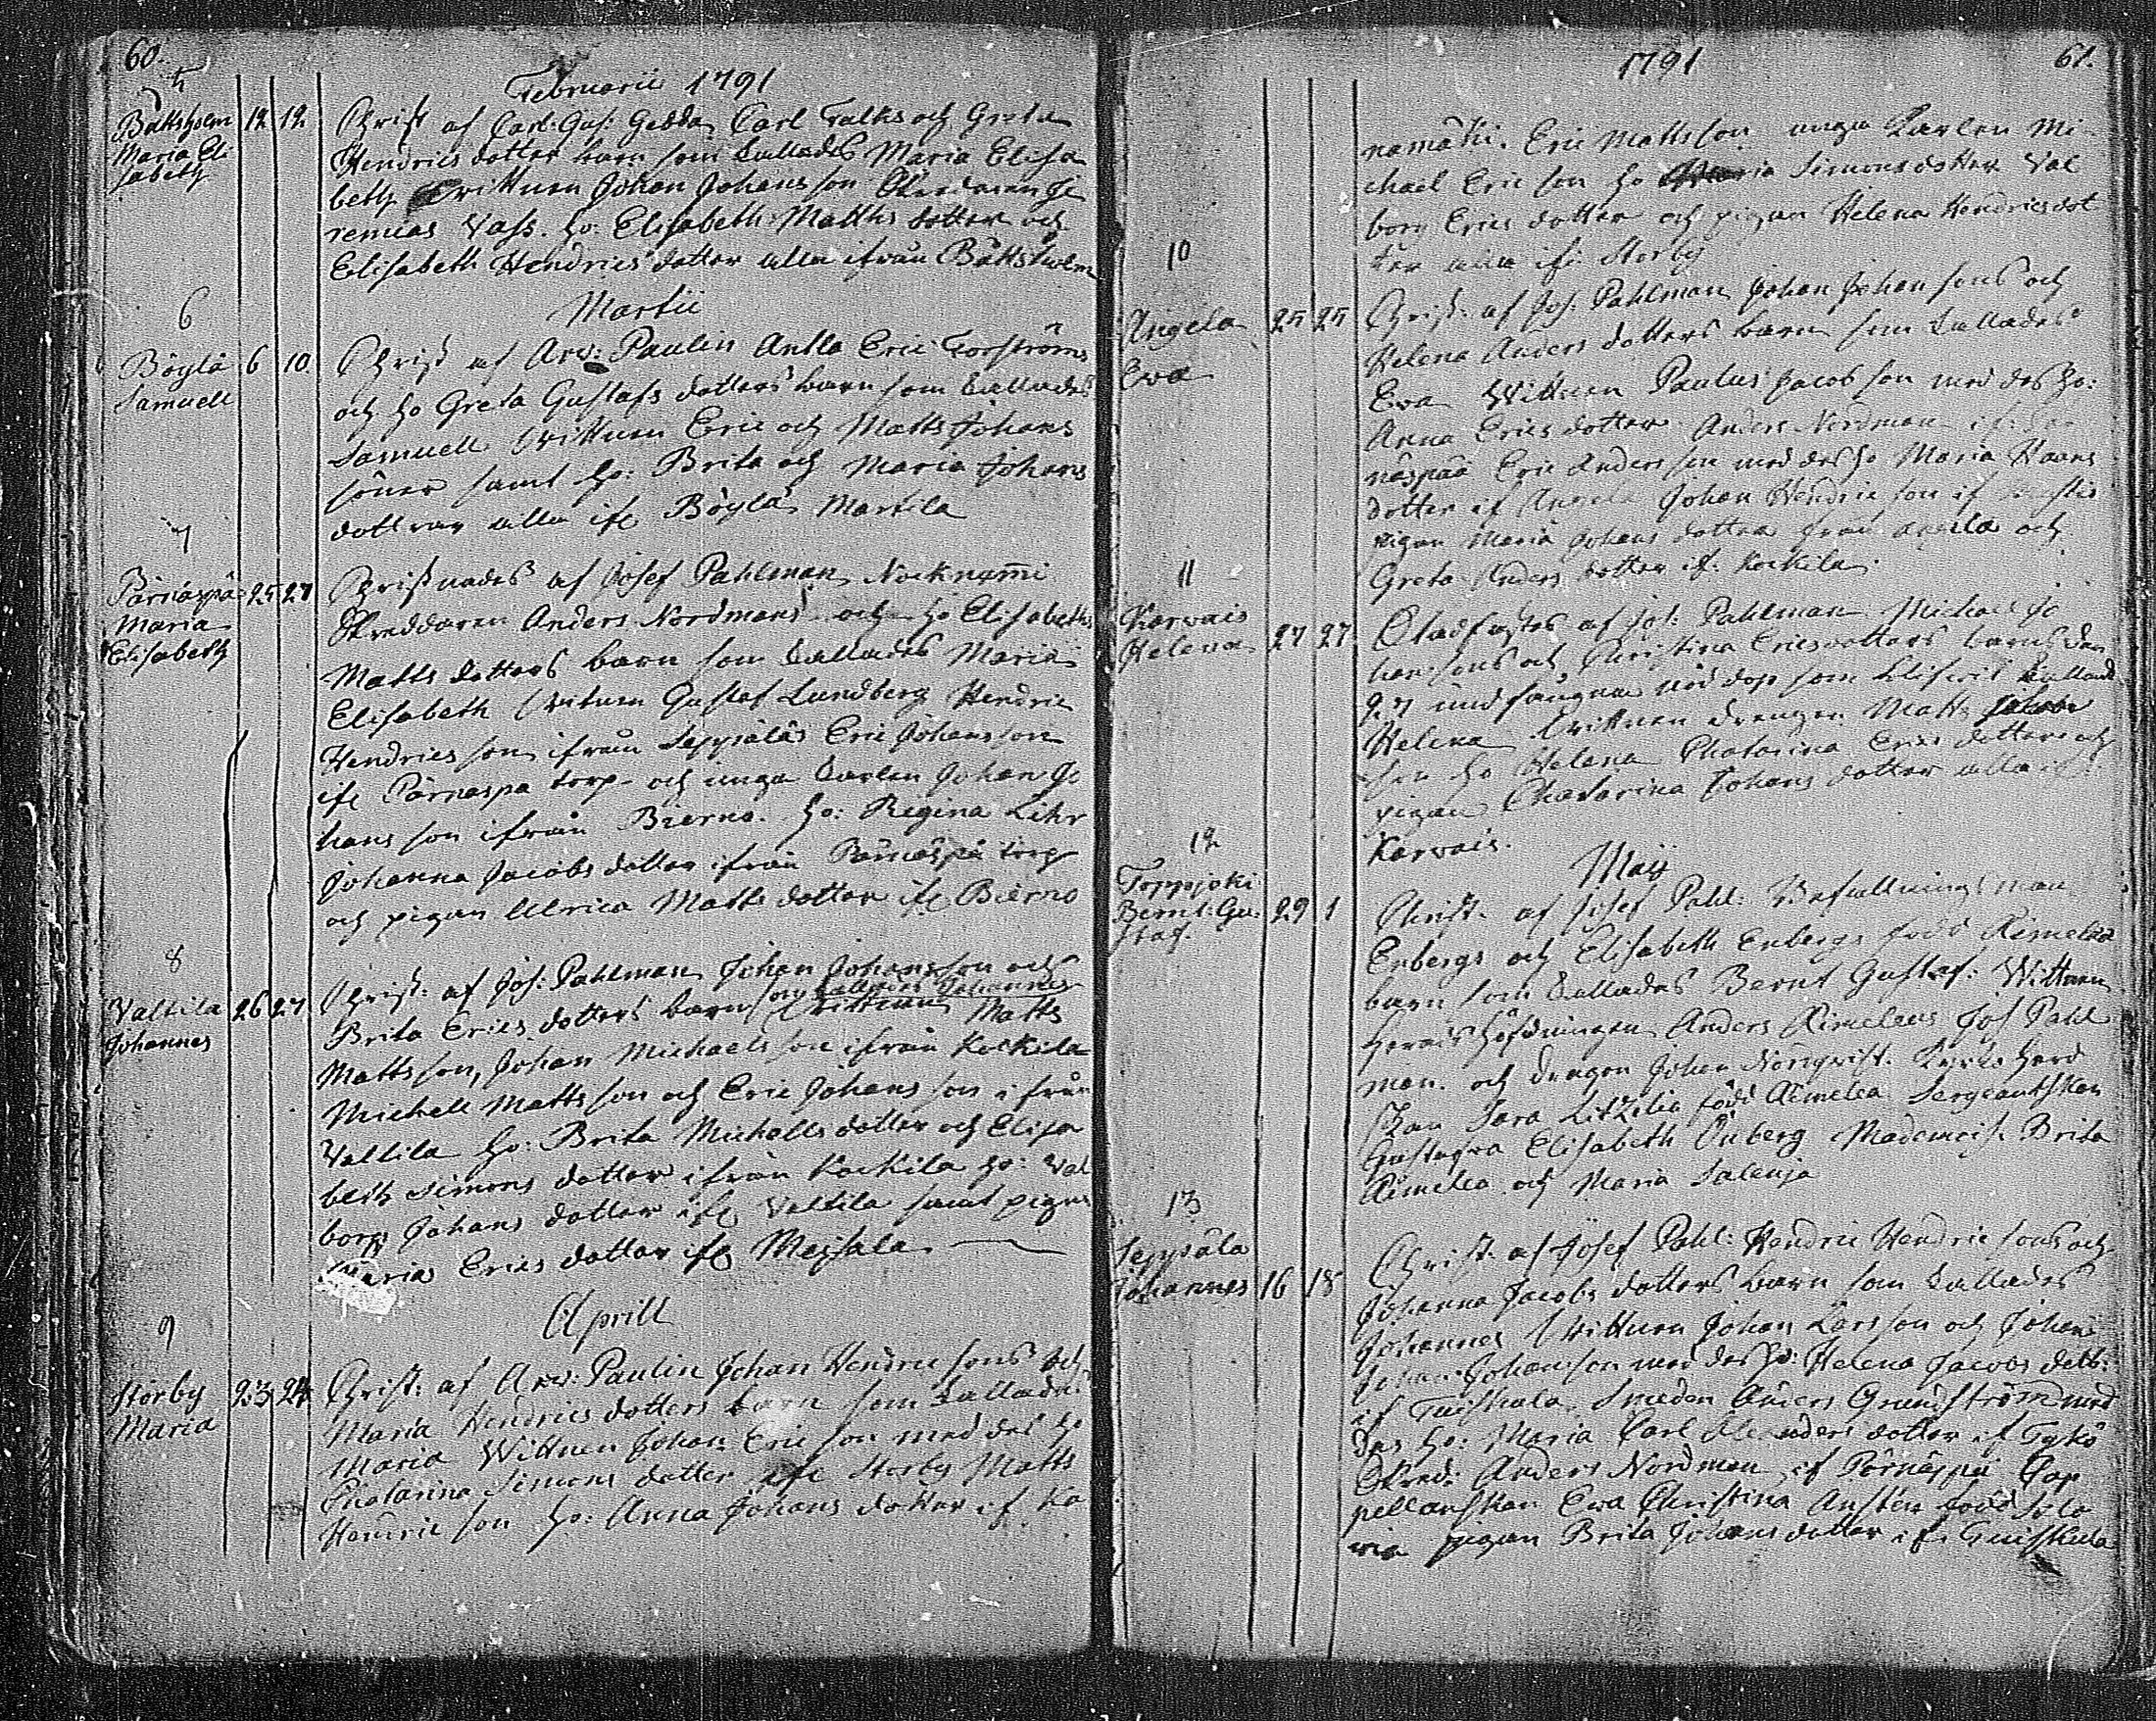 60.
5
Februarii 1791
Båttsholm 12 12 Christ af Carl: Gus: Gedda, Carl Falks och Greta
Maria Eli Hendrics dotter barn som kallades Maria Elisa
sabeth beth Wittnen Johan Johansson Je
remias Vass. ho: Elisabeth Matths dotter och
Elisabeth Hendrics dotter alla ifrån Båttsholm
6
Martii
Böylä 6 10 Christ af Arv: Paulin Antla Eric Forströms
Samuell och ho Greta Gustafs dotters barn som kallades
Samuell Wittnen Eric och Matts Johans
söner samt ho: Brita och Maria Johans
dottrar alla ifr Böylä Martila
7
Pärnäspä 25 27 Christnades af Josef Pahlman, Nocknami
Maria Skreddaren Anders Nordmans och ho Elisabeths
Elisabeth Matts dotters barn som kallades Maria
Elisabeth Witnen Gustaf Lundberg Hendric
Hendricsson ifrån Seppälä Eric Johansson
ifr Pärnäspä torp och unga karlen Johan Jo
hansson ifrån Bierno. ho: Regina Lihr
Johanna Jacobs dotter ifrån Pärnäspä torp
och pigan Ulrica Matts dotter ifr Bierno
8
Valtila 26 27 Christ: af Jos: Pahlman, Johan Johansson och
Johannes Brita Erics dotters barn som kallades Johannes Wittnen Matts
Mattsson, Johan Michaelsson ifrån Kockila
Michell Mattsson och Eric Johansson ifrån
Valtila ho: Brita Michells dotter och Elisa
beth Simons dotter ifrån Kockila ho: Val
borg Johans dotter ifr Valtila samt pigan
Maria Erics dotter ifr Meisala
9
Aprill
Storby 23 24 Christ: af Arv: Paulin Johan Hendricsons och
Maria Maria Hendrics dotters barn som kallades
Maria Wittnen Johan Ericson med des ho
Chatarina Simons dotter ifr Storby Matts
Hendricson ho: Anna Johans dotter if Ka
1791
61.
namäki. Eric Mattsson unga karlen Mi
chael Ericson ho Maria Simonsdotter Val
borg Erics dotter och pigan Helena Hendricsdot
ter alla ifr Storby
10
Angela 25 25 Christ: af Jos: Pahlman Johan Johansons och
Eva Helena Anders dotters barn som kallades
Eva Wittnen Paulus Jacobson med des ho:
Anna Erics dotter Anders Nordman if:
näspää Eric Andersson med des ho Maria Haans
dotter if Angela Johan Hendricson if
pigan Maria Johans dotter från Angela och
Greta Anders dotter if: Kockila.
11
Karvais Stadfästes af Jos: Pahlman Michael Jo
Helena 27 27 hansons och Christina Ericsdotters barns den
27 undfångna nöddop som blifvit kallad
Helena Wittnen drengen Matts
son ho Helena Chatarina Erics dotter och
pigan Chatarina Johans dotter alla ifr
Karvais.
12
Maij
Toppjoki Christ. af Josef Pahl: Befallnings man
Bernt: Gu 29 1 Enbergs och Elisabeth Enbergs född Rimelea
staf. barn som kallades Bernt Gustaf: Wittnen
Herads Höfdningen Anders Rimeleus Jos Pahl
man. och dragon Johan Nörqvist. Kyrko herd
skan Sara Litzelia född Rimelea Sergeantskan
Gustafva Elisabeth Önberg Mademois: Brita
Rimelea och Maria Salenja
13
Seppälä Christ: af Josef Pahl: Hendric Hendricsons och
Johannes 16 18 Johanna Jacobs dotters barn som kallades
Johannes Wittnen Johan Larsson och Johan
Johansson med des ho: Helena Jacobs dott:
if Tuiskula Smeden Anders Grundström med
des ho: Maria Carl dotter if Tykö
Skred: Anders Nordman if Pärnäspä Cap
pellanskan Eva Christina Austén född Polo
via pigan Brita Johans dotter ifr Tuiskula